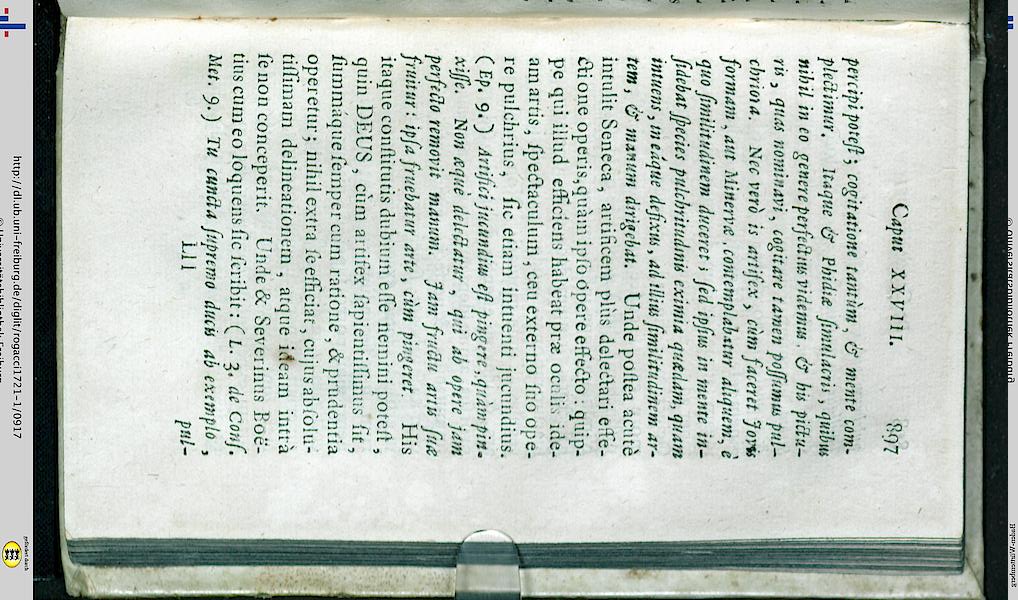 Caput XXVIII. 897
percipi potest; cogitatione tantùm, & mente com-
plectimur. Itaque & Phidiæ simulacris, quibus
nihil in eo genere perfectius videmus & his pictu-
ris, quas nominavi, cogitare tamen possumus pul-
chriora. Nec verò is artifex, cùm faceret Jovis
formam, aut Minervæ, contemplabatur aliquem, è
quo similitudinem duceret; sed ipsius in mente in-
sidebat species pulchritudinis eximia quædam, quam
intuens, in eáque defixus, ad illius similitudinem ar-
tem, & manum dirigebat. Unde postea acutè
intulit Seneca, artificem plus delectari effe-
ctione operis, quàm ipso opere effecto, quip-
pe qui illud efficiens habeat præ oculis ide-
am artis, spectaculum, ceu externo suo ope-
re pulchrius, sic etiam intuenti jucundius.
(Ep. 9.) Artifici jucundius est pingere quàm pin-
xisse. Non æquè delectatur, qui ab opere jam
perfecto removit manum. Jam fructu artis suæ
fruitur: ipsa fruebatur arte, cùm pingeret. His
itaque constitutis dubium esse nemini potest,
quin DEUS, cùm artifex sapientissimus sit,
summáque semper cum ratione, & prudentia
operetur; nihil extra se efficiat, cujus absolu-
tissimam delineationem, atque ideam intrà
se non conceperit. Unde & Severinus Boë-
tius cum eo loquens sic scribit: (L. 3. de Cons.
Met. 9.) Tu cuncta supremo ducis ab exemplo,
Lll pul-
http://dl.ub.uni-freiburg.de/diglit/rogacci1721-1/0917
© Universitätsbibliothek Freiburg